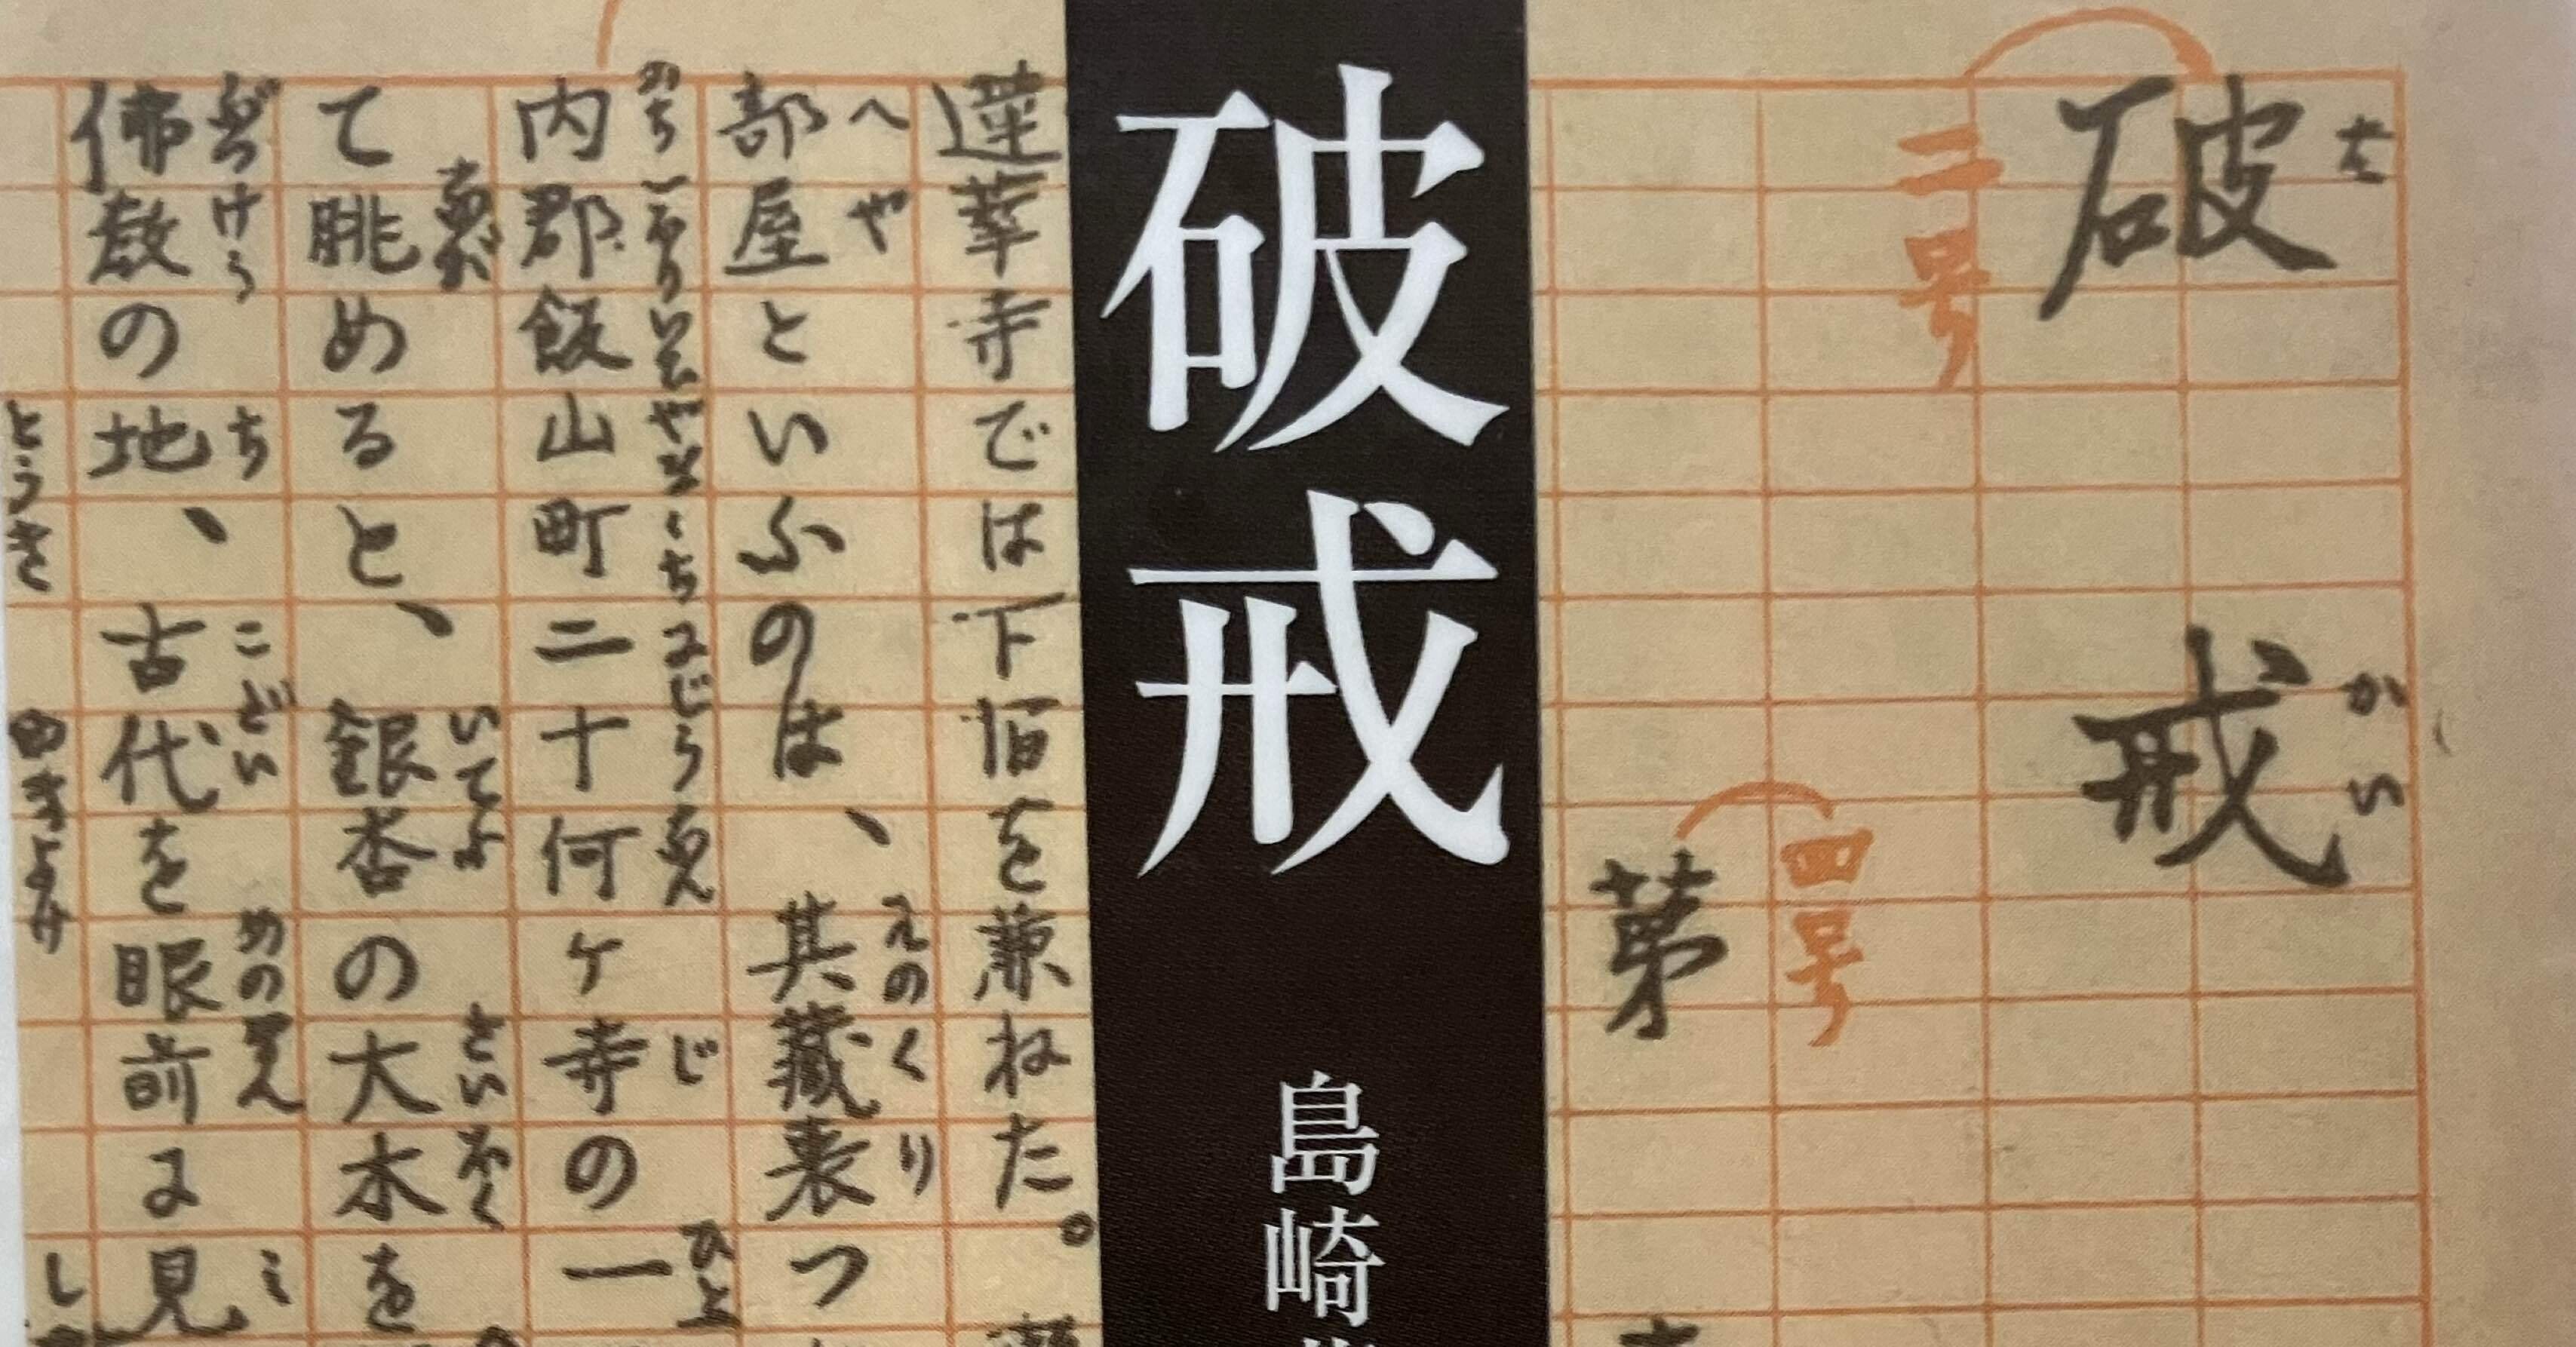 は かい
破戒
二号
四号
第
破戒 島崎
蓮華寺では下宿を兼ねた。
へや そのくり
部屋といふのは、其蔵裏つ
にじうなん じ ひと
内郡飯山町二十何ヶ寺の一
なが いてふ たいぼく
て眺めると、銀杏の大木を
ぶつけう ち こだい み
佛教の地、古代を眼前に見
とうき し